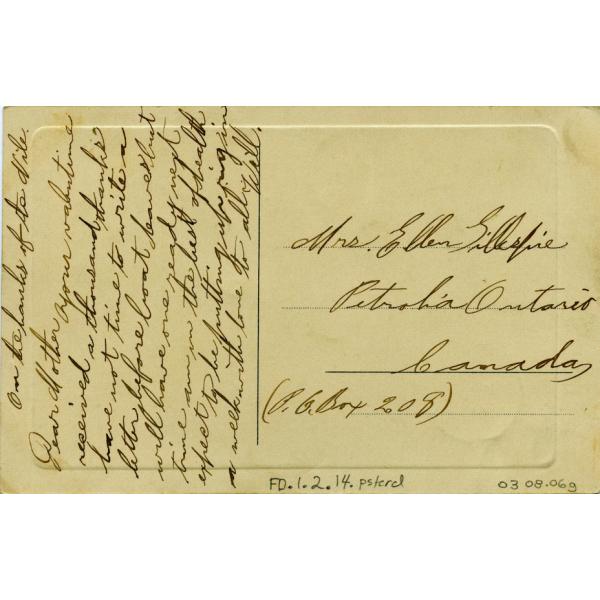 On the banks of the Nile.
Dear Mother your valintine
received a thousand thanks
have not time to write a
letter before boat leaves but
will have one ready next
time am in the best of health
expect to be putting up rig in
a week with love to all
Will.
Mrs. Ellen Gillespie
Petrolia Ontario
Canada
(P.O. Box 208)
FD.1.2.14.pstcrd
03 08.06g